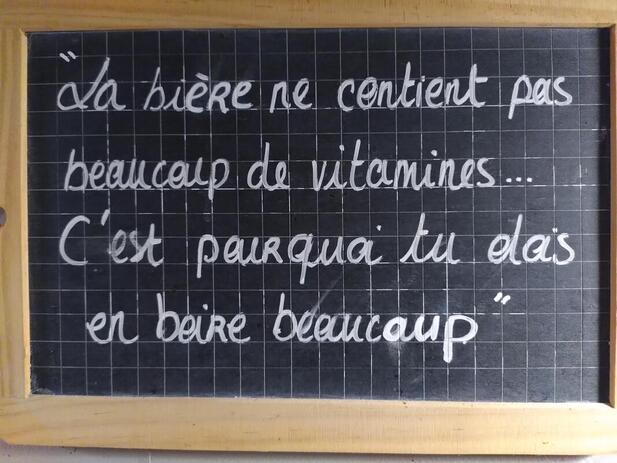 "La bière ne contient pas
beaucoup de vitamines...
C'est pourquoi tu dois
en boire beaucoup"